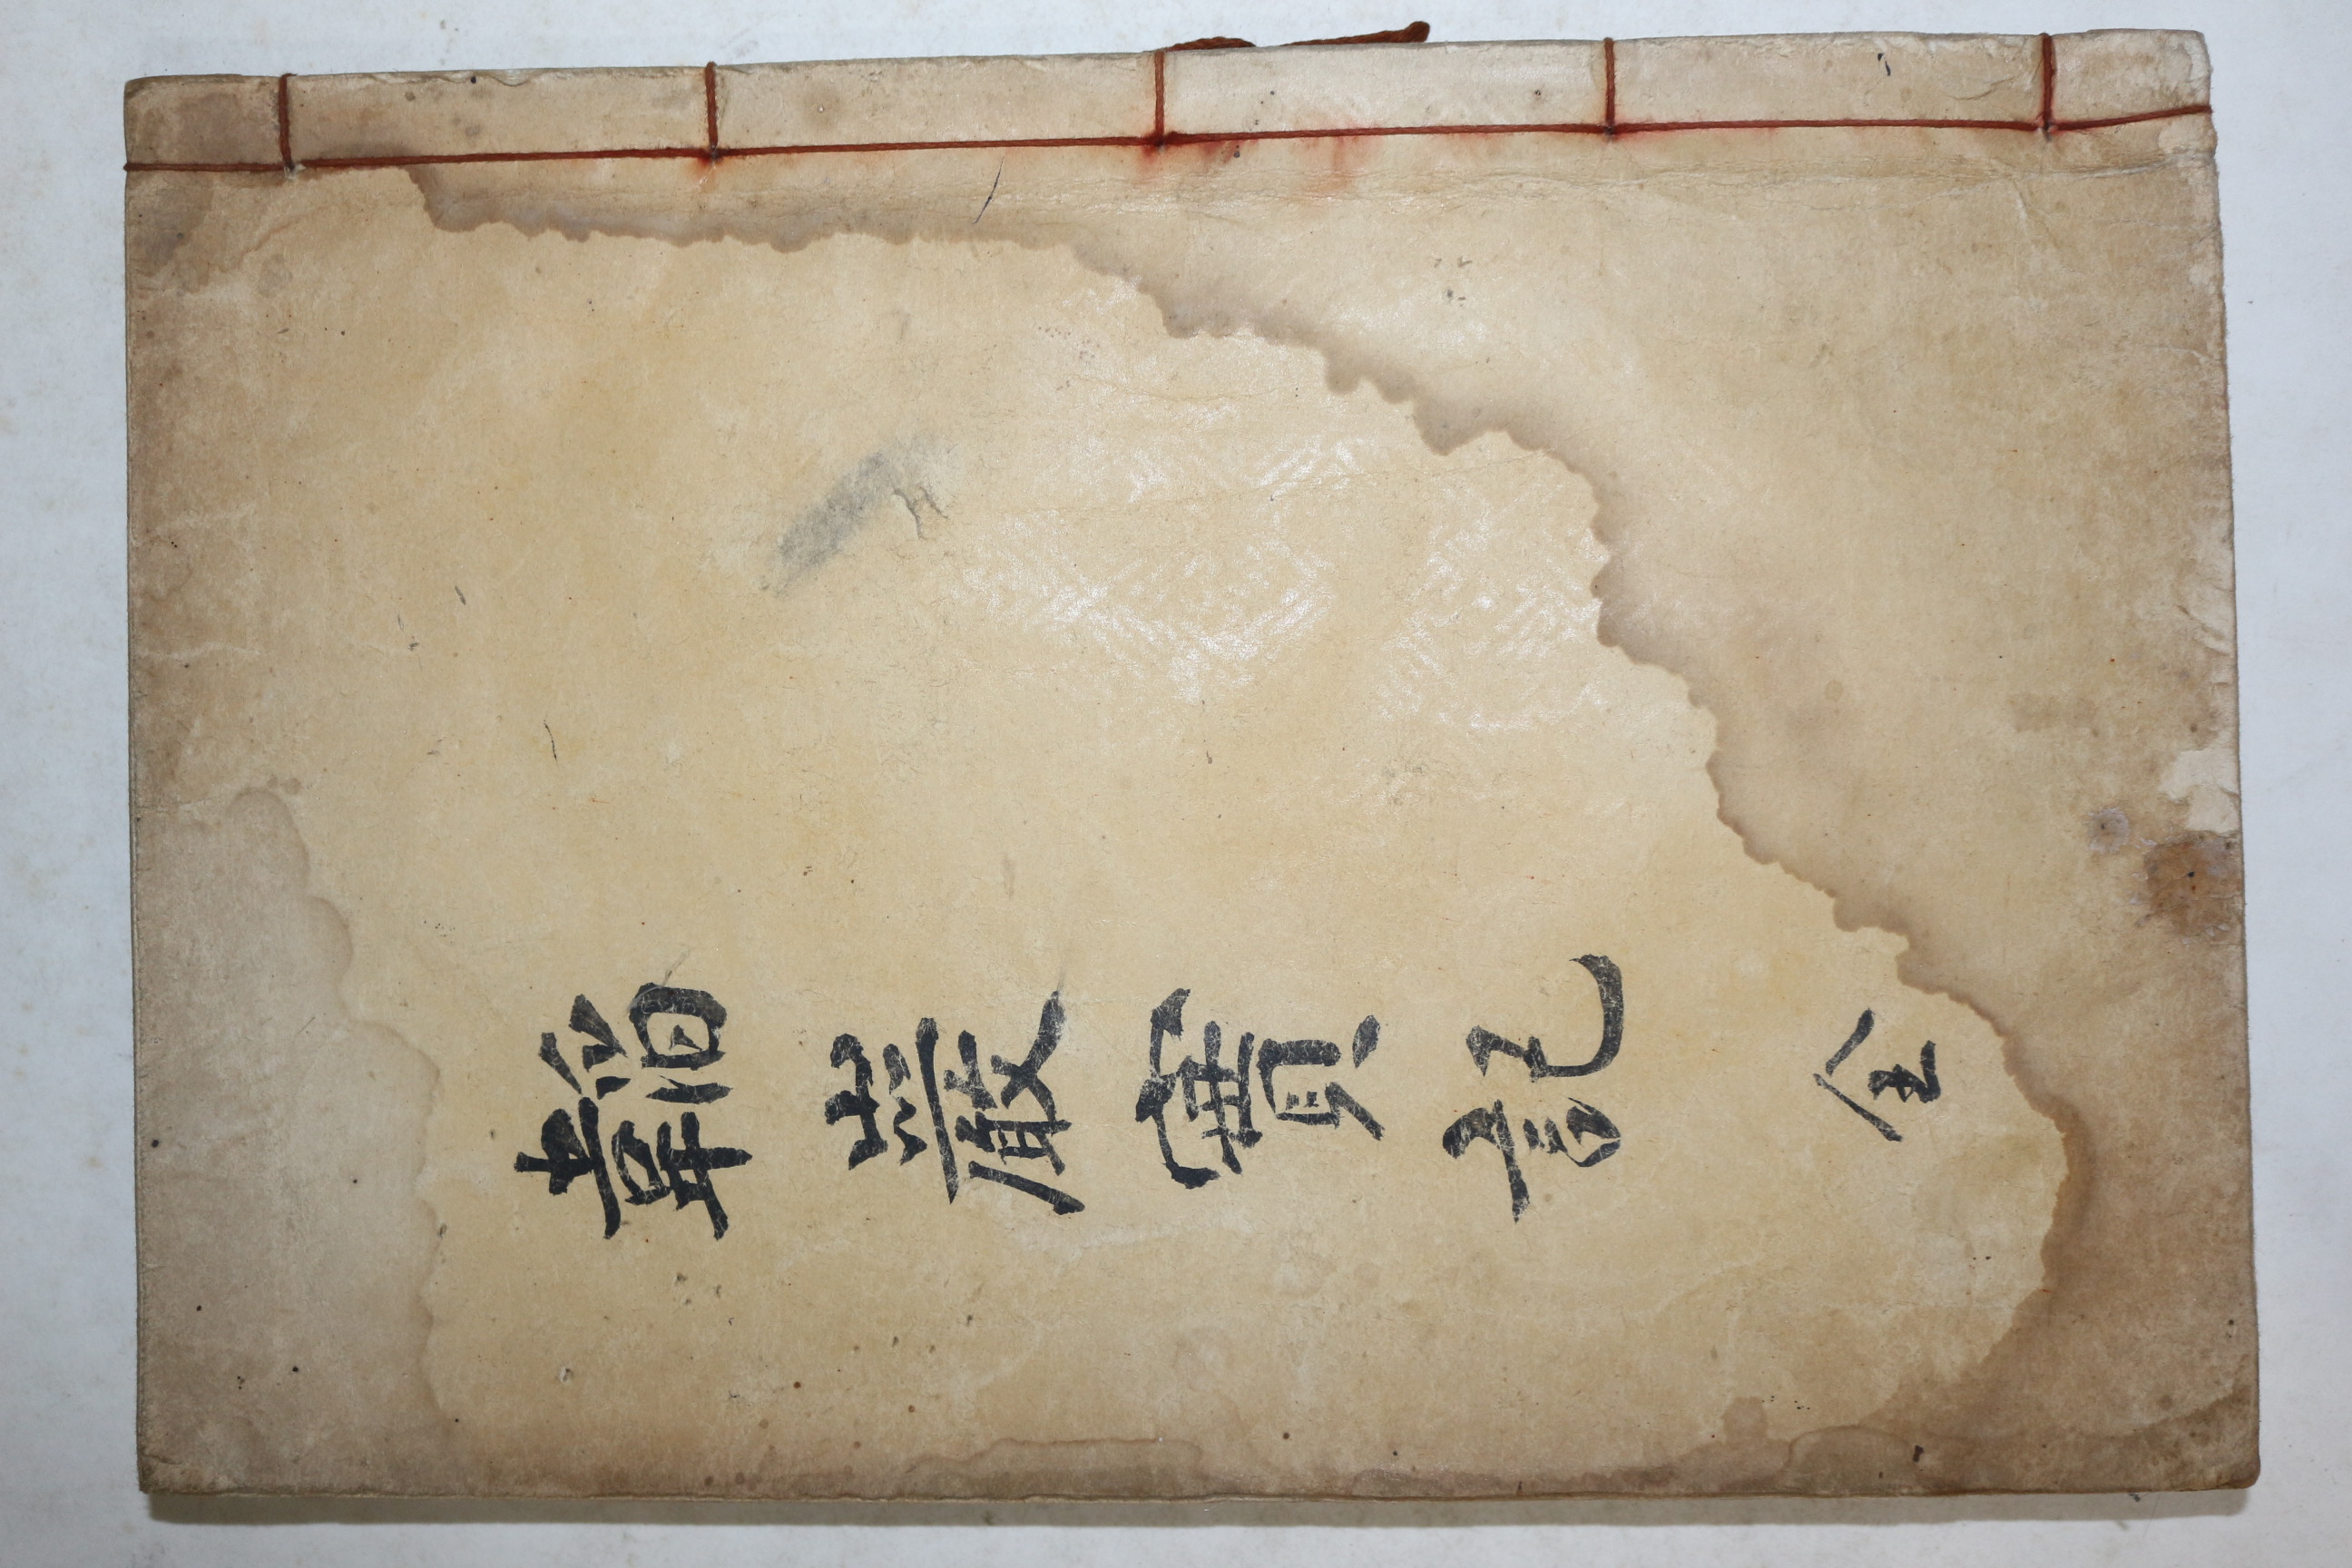 韜巖實記 全